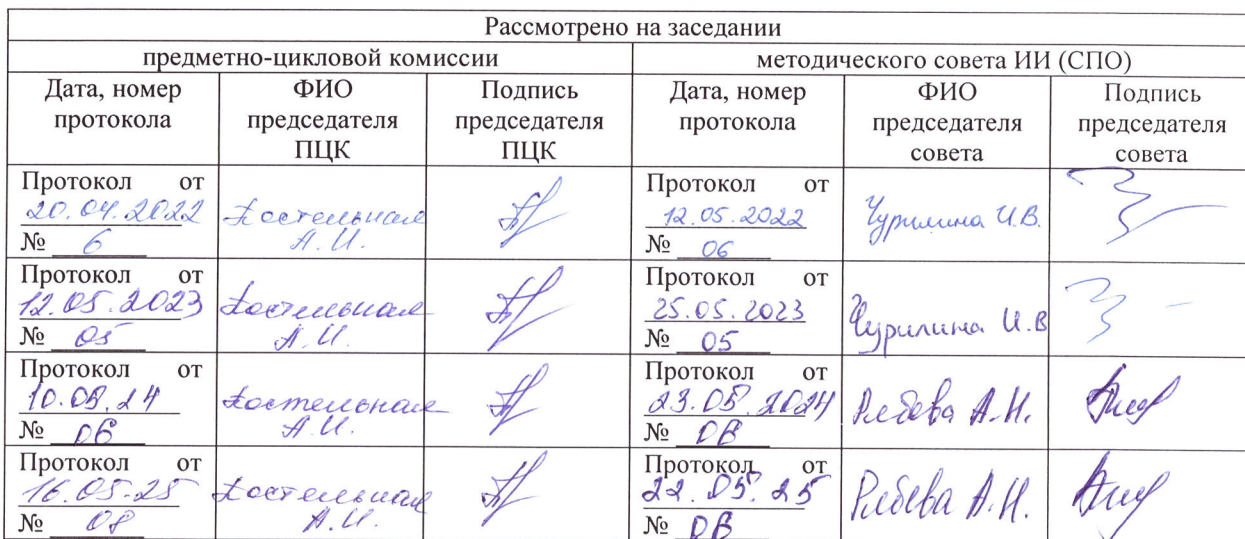 Рассмотрено на заседании
предметно-цикловой комиссии
методического совета ИИ (СПО)
Дата, номер протокола
ФИО председателя ПЦК
Подпись председателя ПЦК
Дата, номер протокола
ФИО председателя совета
Подпись председателя совета
Протокол от
20.04.2022
№ 6
Костельная
А.И.
Протокол от
12.05.2022
№ 06
Чурилина И.В.
Протокол от
12.05.2023
№ 05
Костельная
А.И.
Протокол от
25.05.2023
№ 05
Чурилина И.В
Протокол от
№
Костельная
А.И.
Протокол от
23.05.2024
№
А.Н.
Протокол от
16.05.25
№ 08
Костельная
А.И.
Протокол от
22.05.25
№
А.Н.